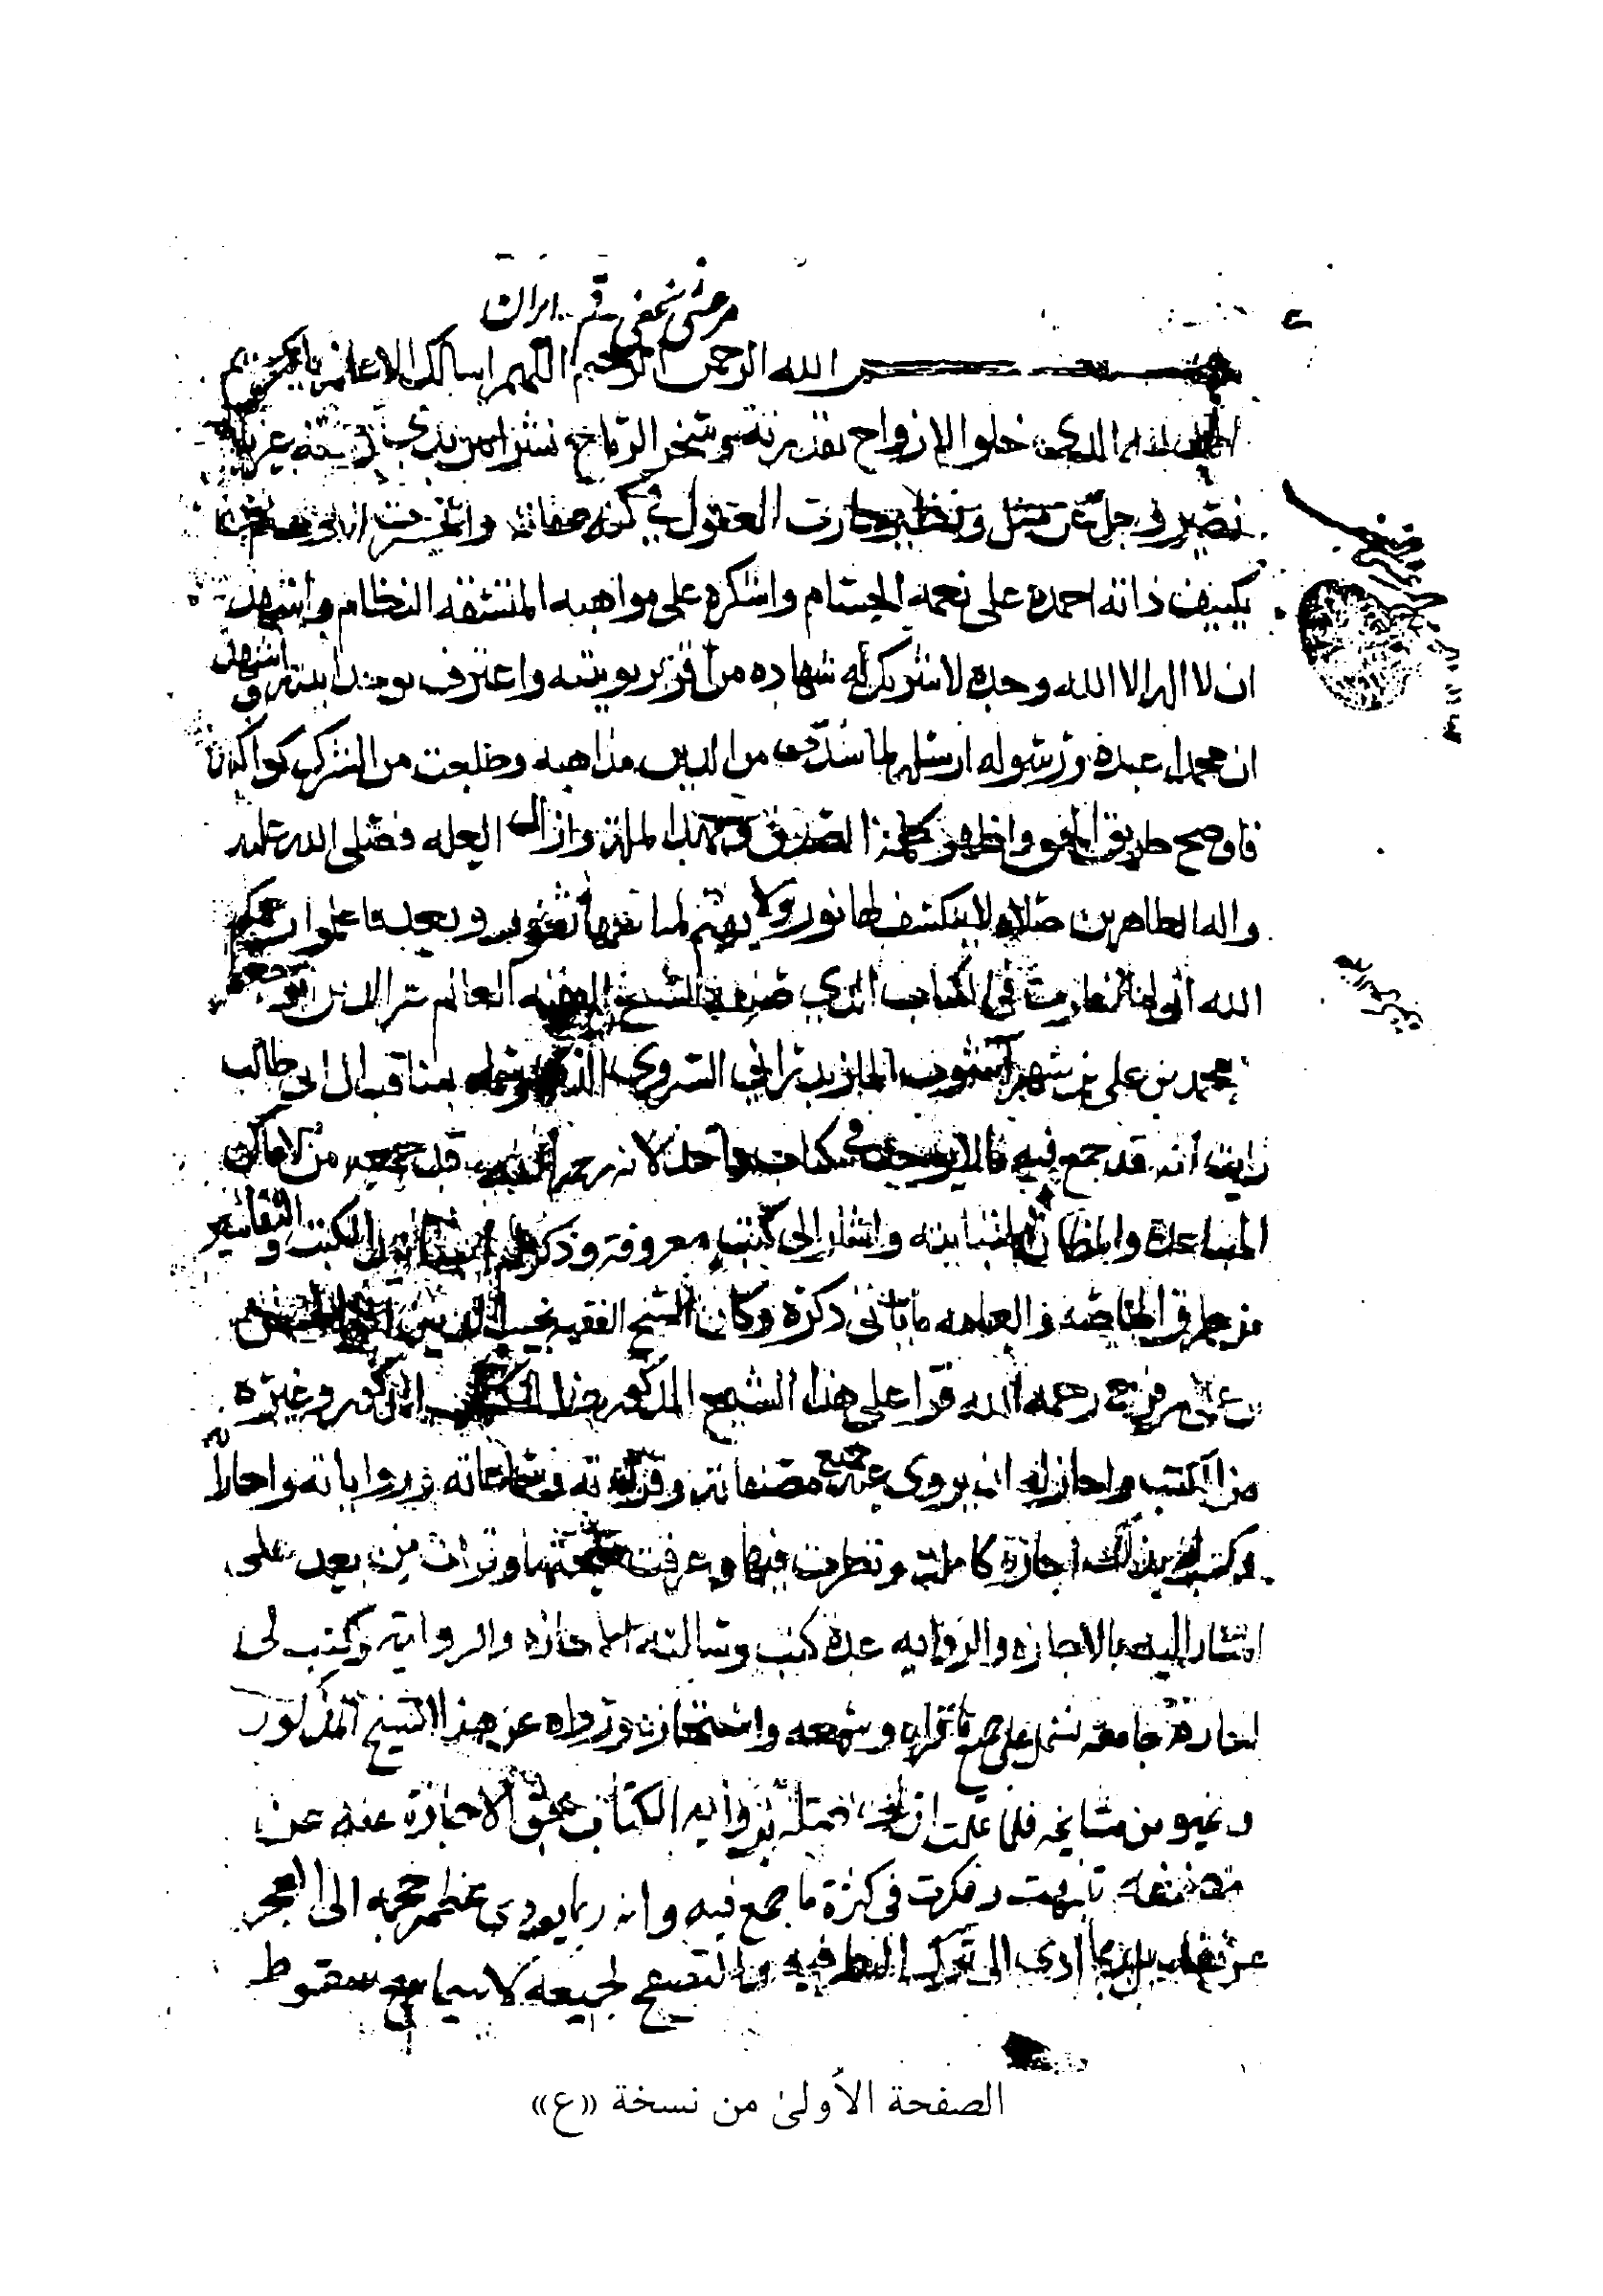 مرعشي نجفي - قم - ايران
بسم الله الرحمن الرحيم اللهم اسالك الاعانه يا كريم
الحمد لله الذي خلق الارواح بقدرته وسخر الرياح نشرا بين يدي رحمته عز
نصير وجل عن مثل ونظير وحارت العقول في كنه صفاته وانحسرت
تكييف ذاته احمده على نعمه الجسام واشكره على مواهبه المتسقه النظام واشهد
ان لا اله الا الله وحده لا شريك له شهاده من اقر بربوبيته واعترف بوحدانيته واشهد
ان محمدا عبده ورسوله ارسله لما سدت من الدين مذاهبه وطلعت من الشرك كواكبه
فاوضح طريق الحق واظهر كلمة الصدق ومهد الملة وازال العله فصلى الله عليه
واله الطاهرين صلاه لا ينكسف لها نور ولا يهتم لها ثغور وبعد فاعلموا رحمكم
الله اني لما نظرت في الكتاب الذي صنفه الشيخ الفقيه العالم عز الدين ابو جعفر
محمد بن على بن شهر آشوب المازندراني السروي الذي وسمه بمناقب ال ابي طالب
رايت انه قد جمع فيه ما لا يوجد في كتاب واحد لانه رحمه الله قد جمعه من الاماكن
المتباعدة والمظان المتباينه واشار الى كتب معروفة وذكر الكتب والتفاسير
من طرق الخاصه والعامه ما ياتى ذكره وكان الشيخ الفقيه نجيب الدين
بن على بن فرج رحمه الله قرا على هذا الشيخ المذكور هذا الكتاب المذكور وغيره
من الكتب واجاز له ان يروى عنه جميع مصنفاته وقراءته وسماعاته ورواياته واجازاته
وكتب له بذلك اجازة كاملة ونظرت فيها وعرفت صحتها وقرات من بعد على
المشار اليه بالاجازه والروايه عدة كتب وسالته الاجازه والرواية وكتب لى
اجازة جامعه تشتمل على جميع ما قراه وسمعه واستجازه ورواه عن هذا الشيخ المذكور
وغيره من مشايخه فلما علمت ان لى برواية الكتاب بحق الاجازة عنه عن
مصنفه تنبهت وفكرت في كثرة ما جمع فيه وانه ربما يودي عظم حجمه الى العجز
عن نقله بل ربما ادى الى ترك النظر فيه والتصفح لجميعه لا سيما مع سقوط
الصفحة الأولىٰ من نسخة «ع»